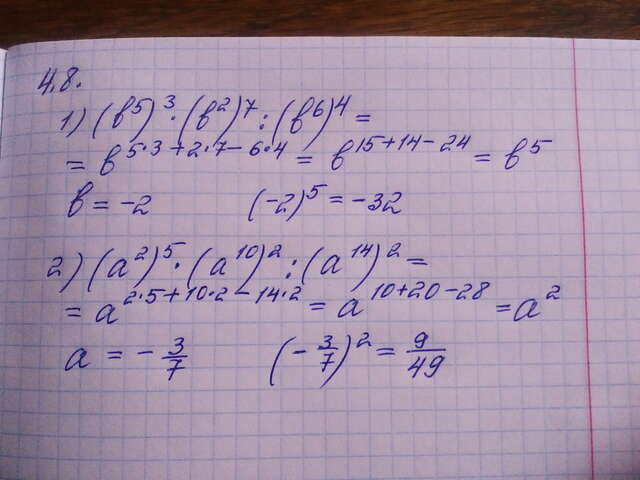 4.8.
1) (b⁵)³·(b²)⁷:(b⁶)⁴=
= b⁵˙³⁺²˙⁷⁻⁶˙⁴ = b¹⁵⁺¹⁴⁻²⁴ = b⁵
b = -2 (-2)⁵ = -32
2) (a²)⁵·(a¹⁰)²:(a¹⁴)²=
= a²˙⁵⁺¹⁰˙²⁻¹⁴˙² = a¹⁰⁺²⁰⁻²⁸ = a²
a = - 3/7 (- 3/7)² = 9/49